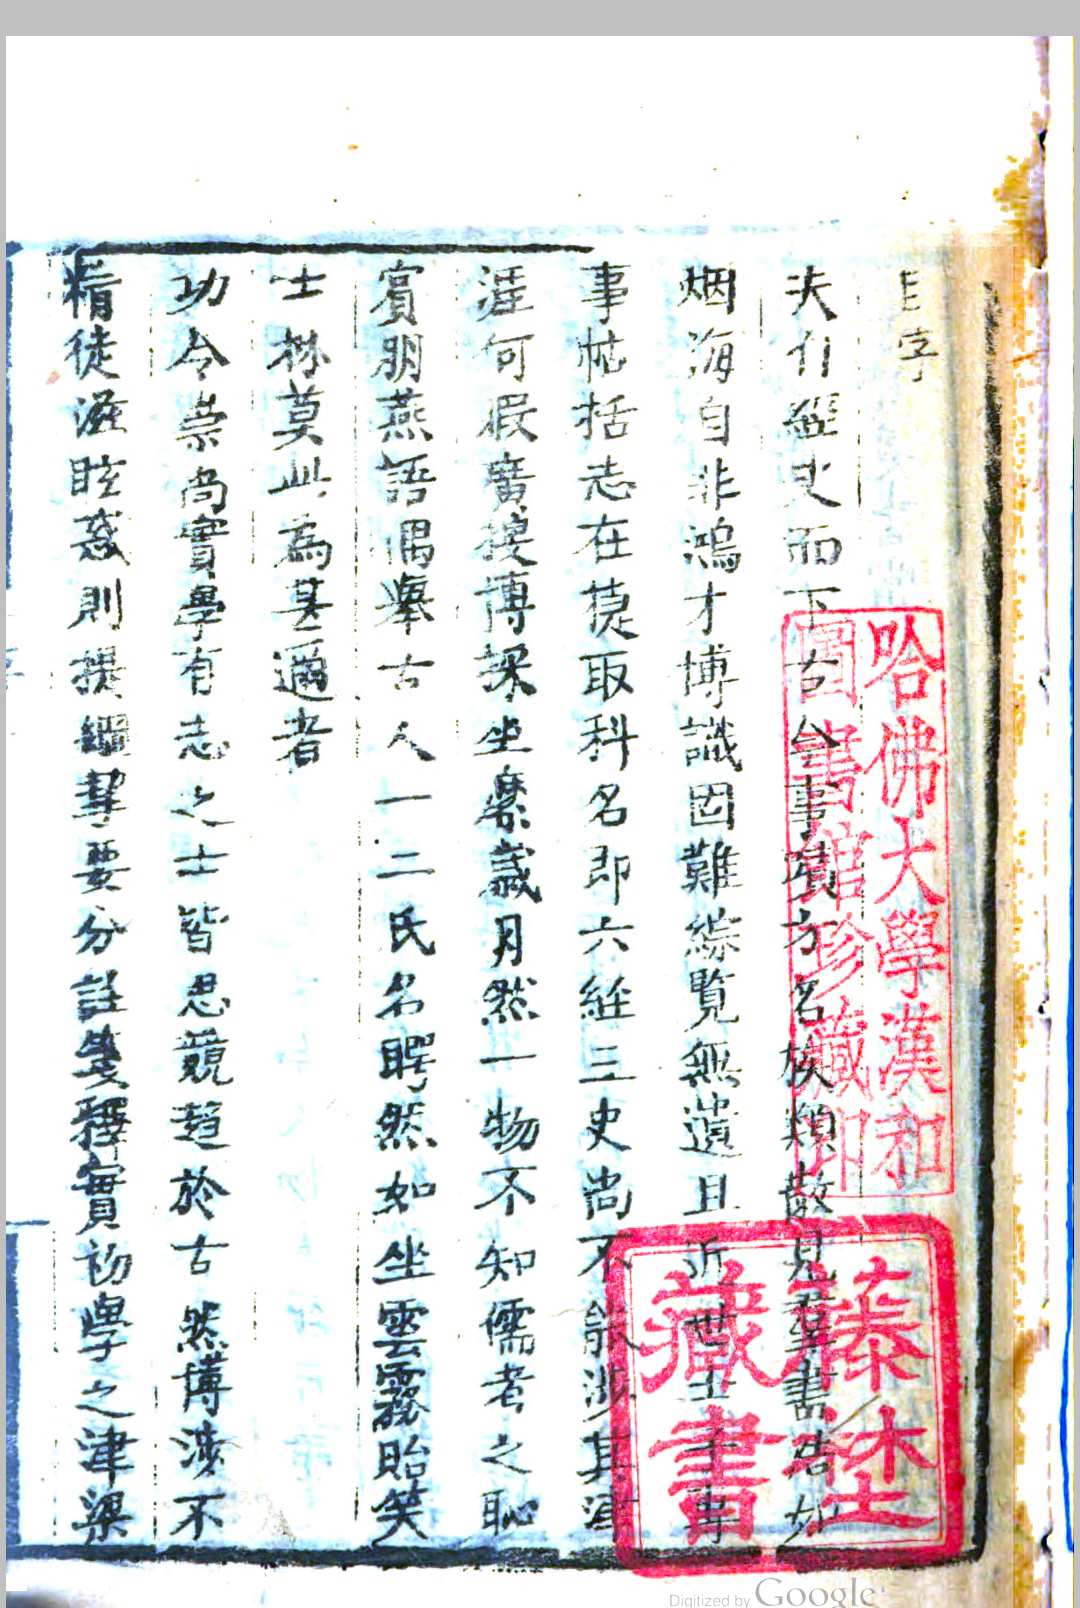 自序
夫有經史而下古今事蹟方名族類散見羣書浩如
烟海自非鴻才博識固難綜覽無遺且近世士子事
事帖括志在捷取科名即六經三史尚不能涉其津
涯何暇廣搜博採坐縻歲月然一物不知儒者之恥
賓朋燕語偶舉古人一二氏名瞢然如坐雲霧貽笑
士林莫此為甚邇者
功令崇尚實學有志之士皆思競趨於古然博涉不
精徒滋眩惑則提綱挈要分註箋釋實初學之津梁
哈佛大學漢和
圖書館珍藏印
藤埜
藏書
Digitized by Google